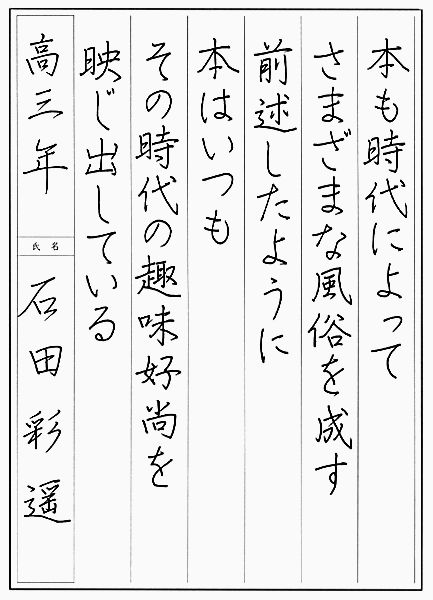 本も時代によって
さまざまな風俗を成す
前述したように
本はいつも
その時代の趣味好尚を
映じ出している
高三年
氏名
石田彩遥